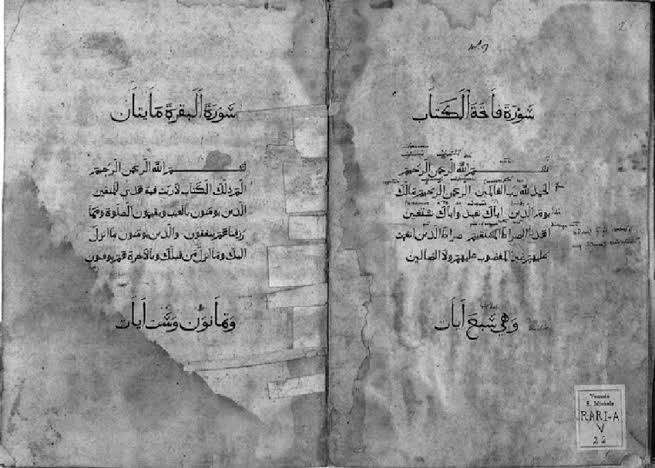 2
سورة فاتحة الكتاب
بسم الله الرحمن الرحيم
الحمد لله رب العالمين الرحمن الرحيم مالك
يوم الدين اياك نعبد واياك نستعين
اهدنا الصراط المستقيم صراط الذين انعمت
عليهم غير المغضوب عليهم ولا الضالين
وهي سبع أيات
سورة البقرة مايتان
بسم الله الرحمن الرحيم
الم ذلك الكتاب لا ريب فيه هدى للمتقين
الذين يومنون بالغيب ويقيمون الصلوة ومما
رزقناهم ينفقون والذين يومنون بما انزل
اليك وما انزل من قبلك وبالاخرة هم يوقنون
وثمانون وست أيات
Venezia
S. Michele
RARI-A
V
22